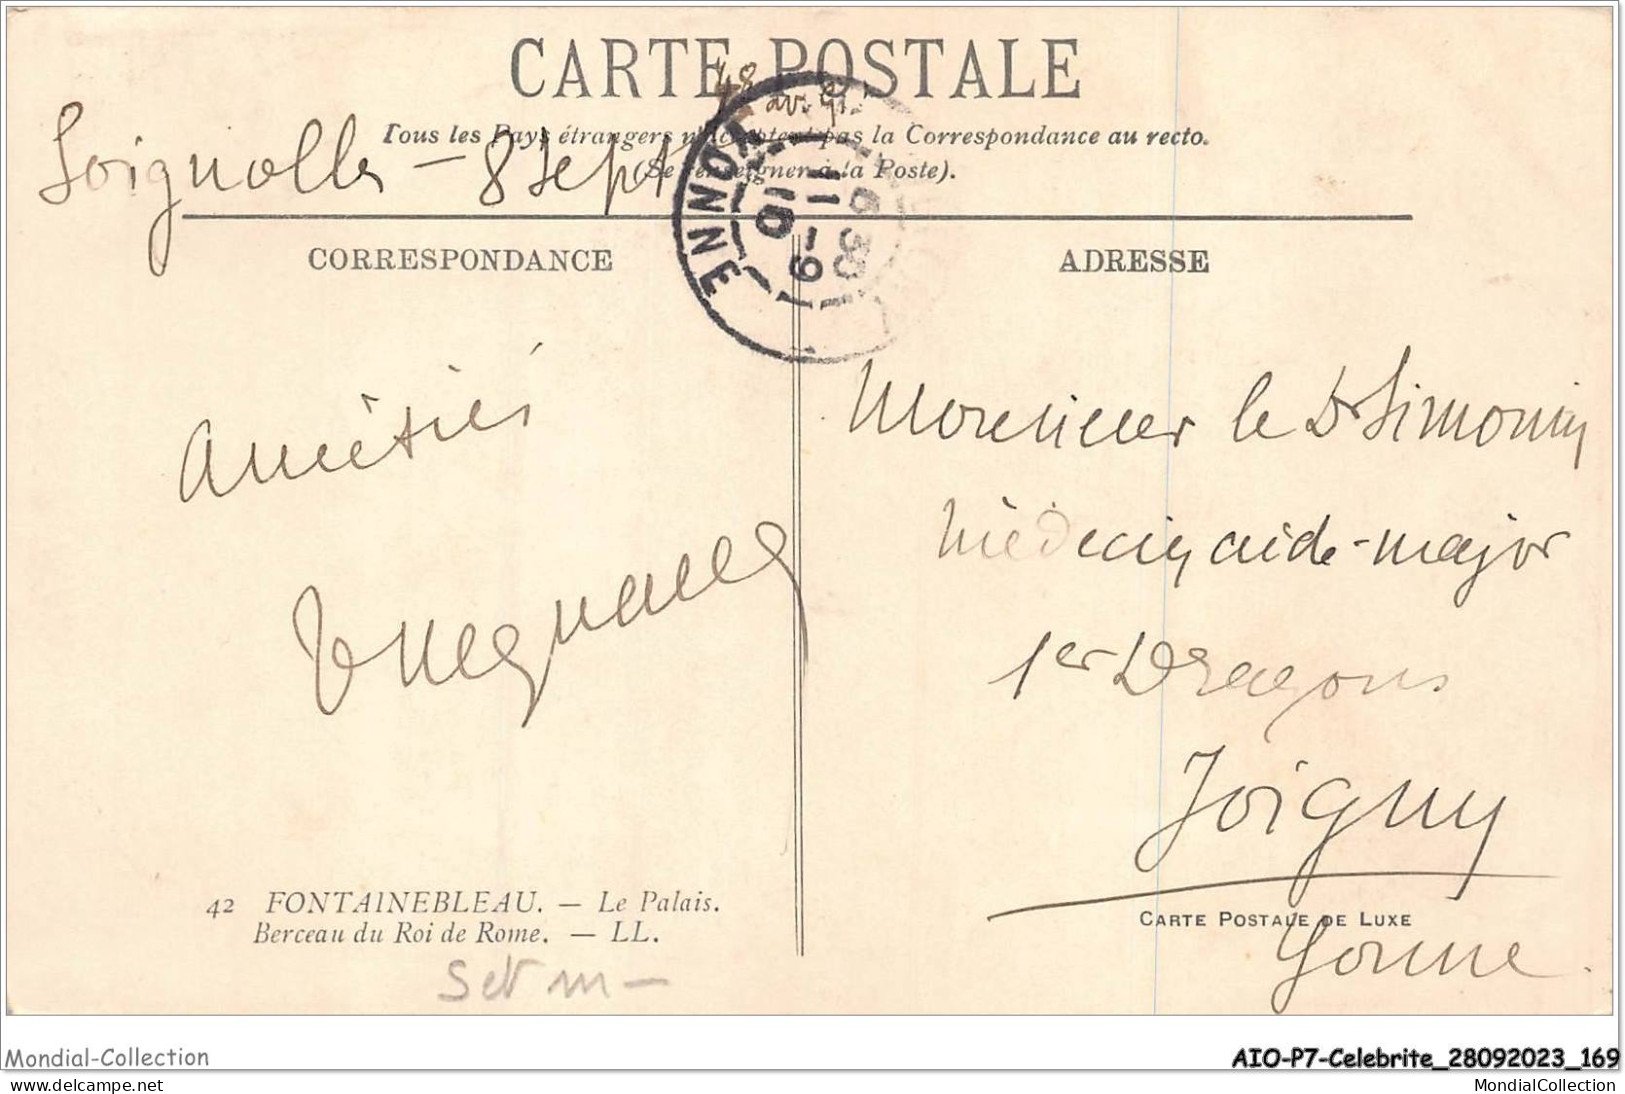 CARTE POSTALE
Tous les Pays étrangers n'acceptent pas la Correspondance au recto.
(Se renseigner à la Poste).
Soignolles - 8 Sept
YONNE
6 30
11 - 9
10
CORRESPONDANCE
ADRESSE
Amitiés
Monsieur le Dr Simonin
Médecin aide-major
1er Dragons
Joigny
Yonne.
42 FONTAINEBLEAU. — Le Palais.
Berceau du Roi de Rome. — LL.
CARTE POSTALE DE LUXE
Mondial-Collection
AIO-P7-Celebrite_28092023_169
www.delcampe.net
MondialCollection